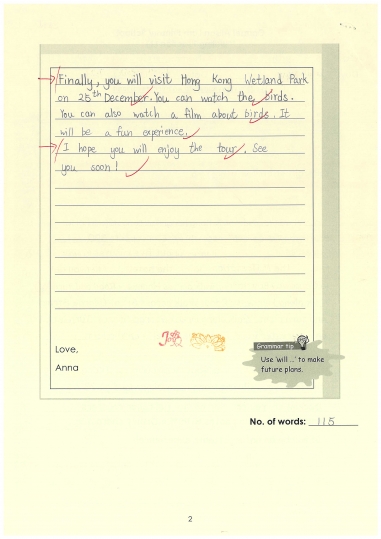 Finally, you will visit Hong Kong Wetland Park
on 25th December. You can watch the birds.
You can also watch a film about birds. It
will be a fun experience.
I hope you will enjoy the tour. See
you soon!
Love,
Anna
Grammar tip
Use 'will ...' to make
future plans.
No. of words: 115
2